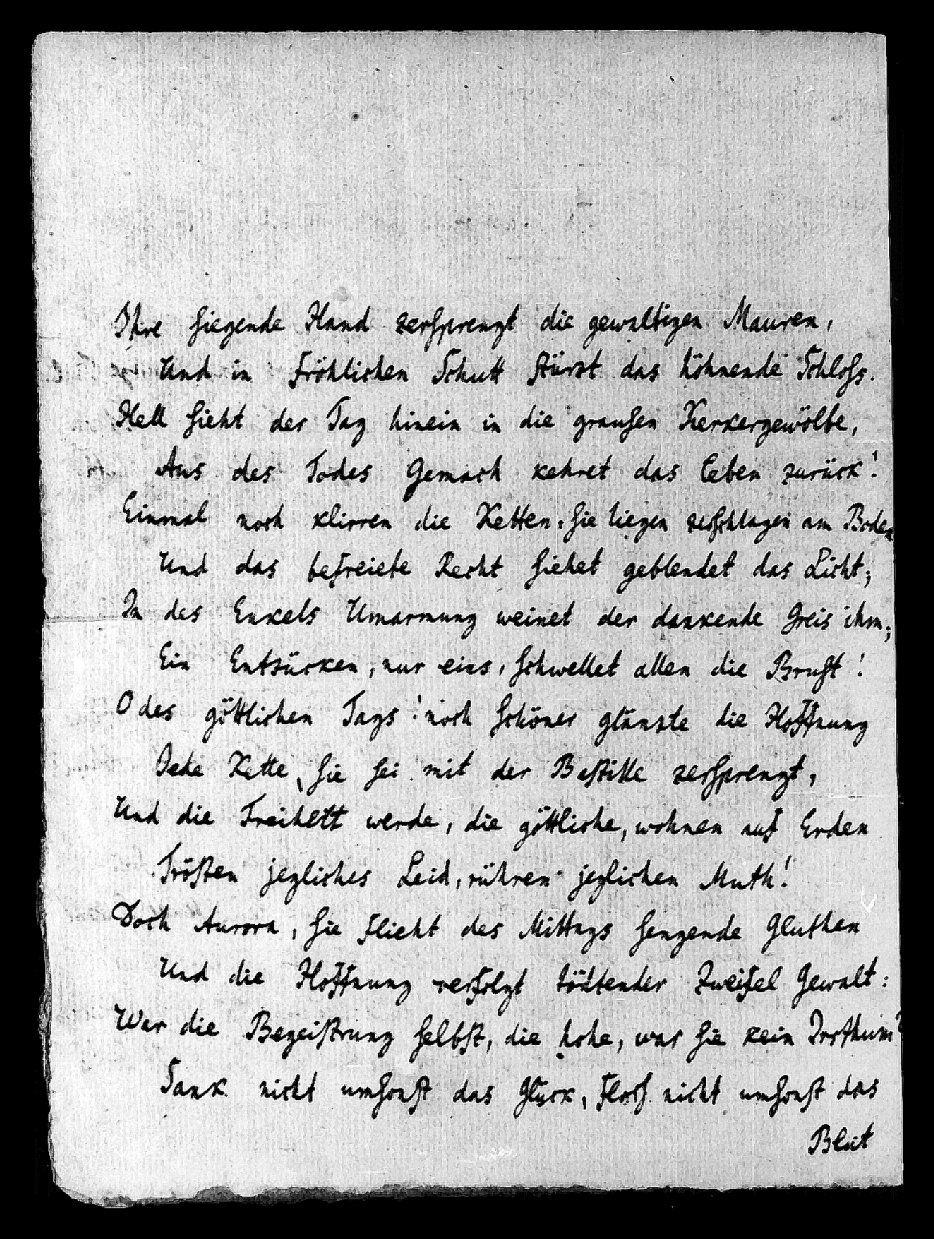 Ihre siegende Hand zersprengt die gewaltigen Mauren,
Und in fröhlichen Schutt stürzt das höhnende Schloss.
Hell sieht der Tag hinein in die grausen Kerkergewölbe,
Aus des Todes Gemach kehret das Leben zurück!
Einmal noch klirren die Ketten, sie liegen zerschlagen am Boden
Und das befreiete Recht siehet geblendet das Licht;
In des Enkels Umarmung weinet der dankende Greis ihm;
Ein Entzücken, nur eins, schwellet allen die Brust!
O des göttlichen Tags! noch schöner glänzte die Hoffnung
Jede Kette, sie sei mit der Bastille zersprengt,
Und die Freiheit werde, die göttliche, wohnen auf Erden
Trösten jegliches Leid, rühren jeglichen Muth!
Doch Aurora, sie flieht des Mittags sengende Gluthen
Und die Hoffnung verfolgt tödtender Zweifel Gewalt:
War die Begeistrung selbst, die hohe, war sie kein Irrthum?
Sank nicht umsonst das Glück, floss nicht umsonst das
Blut